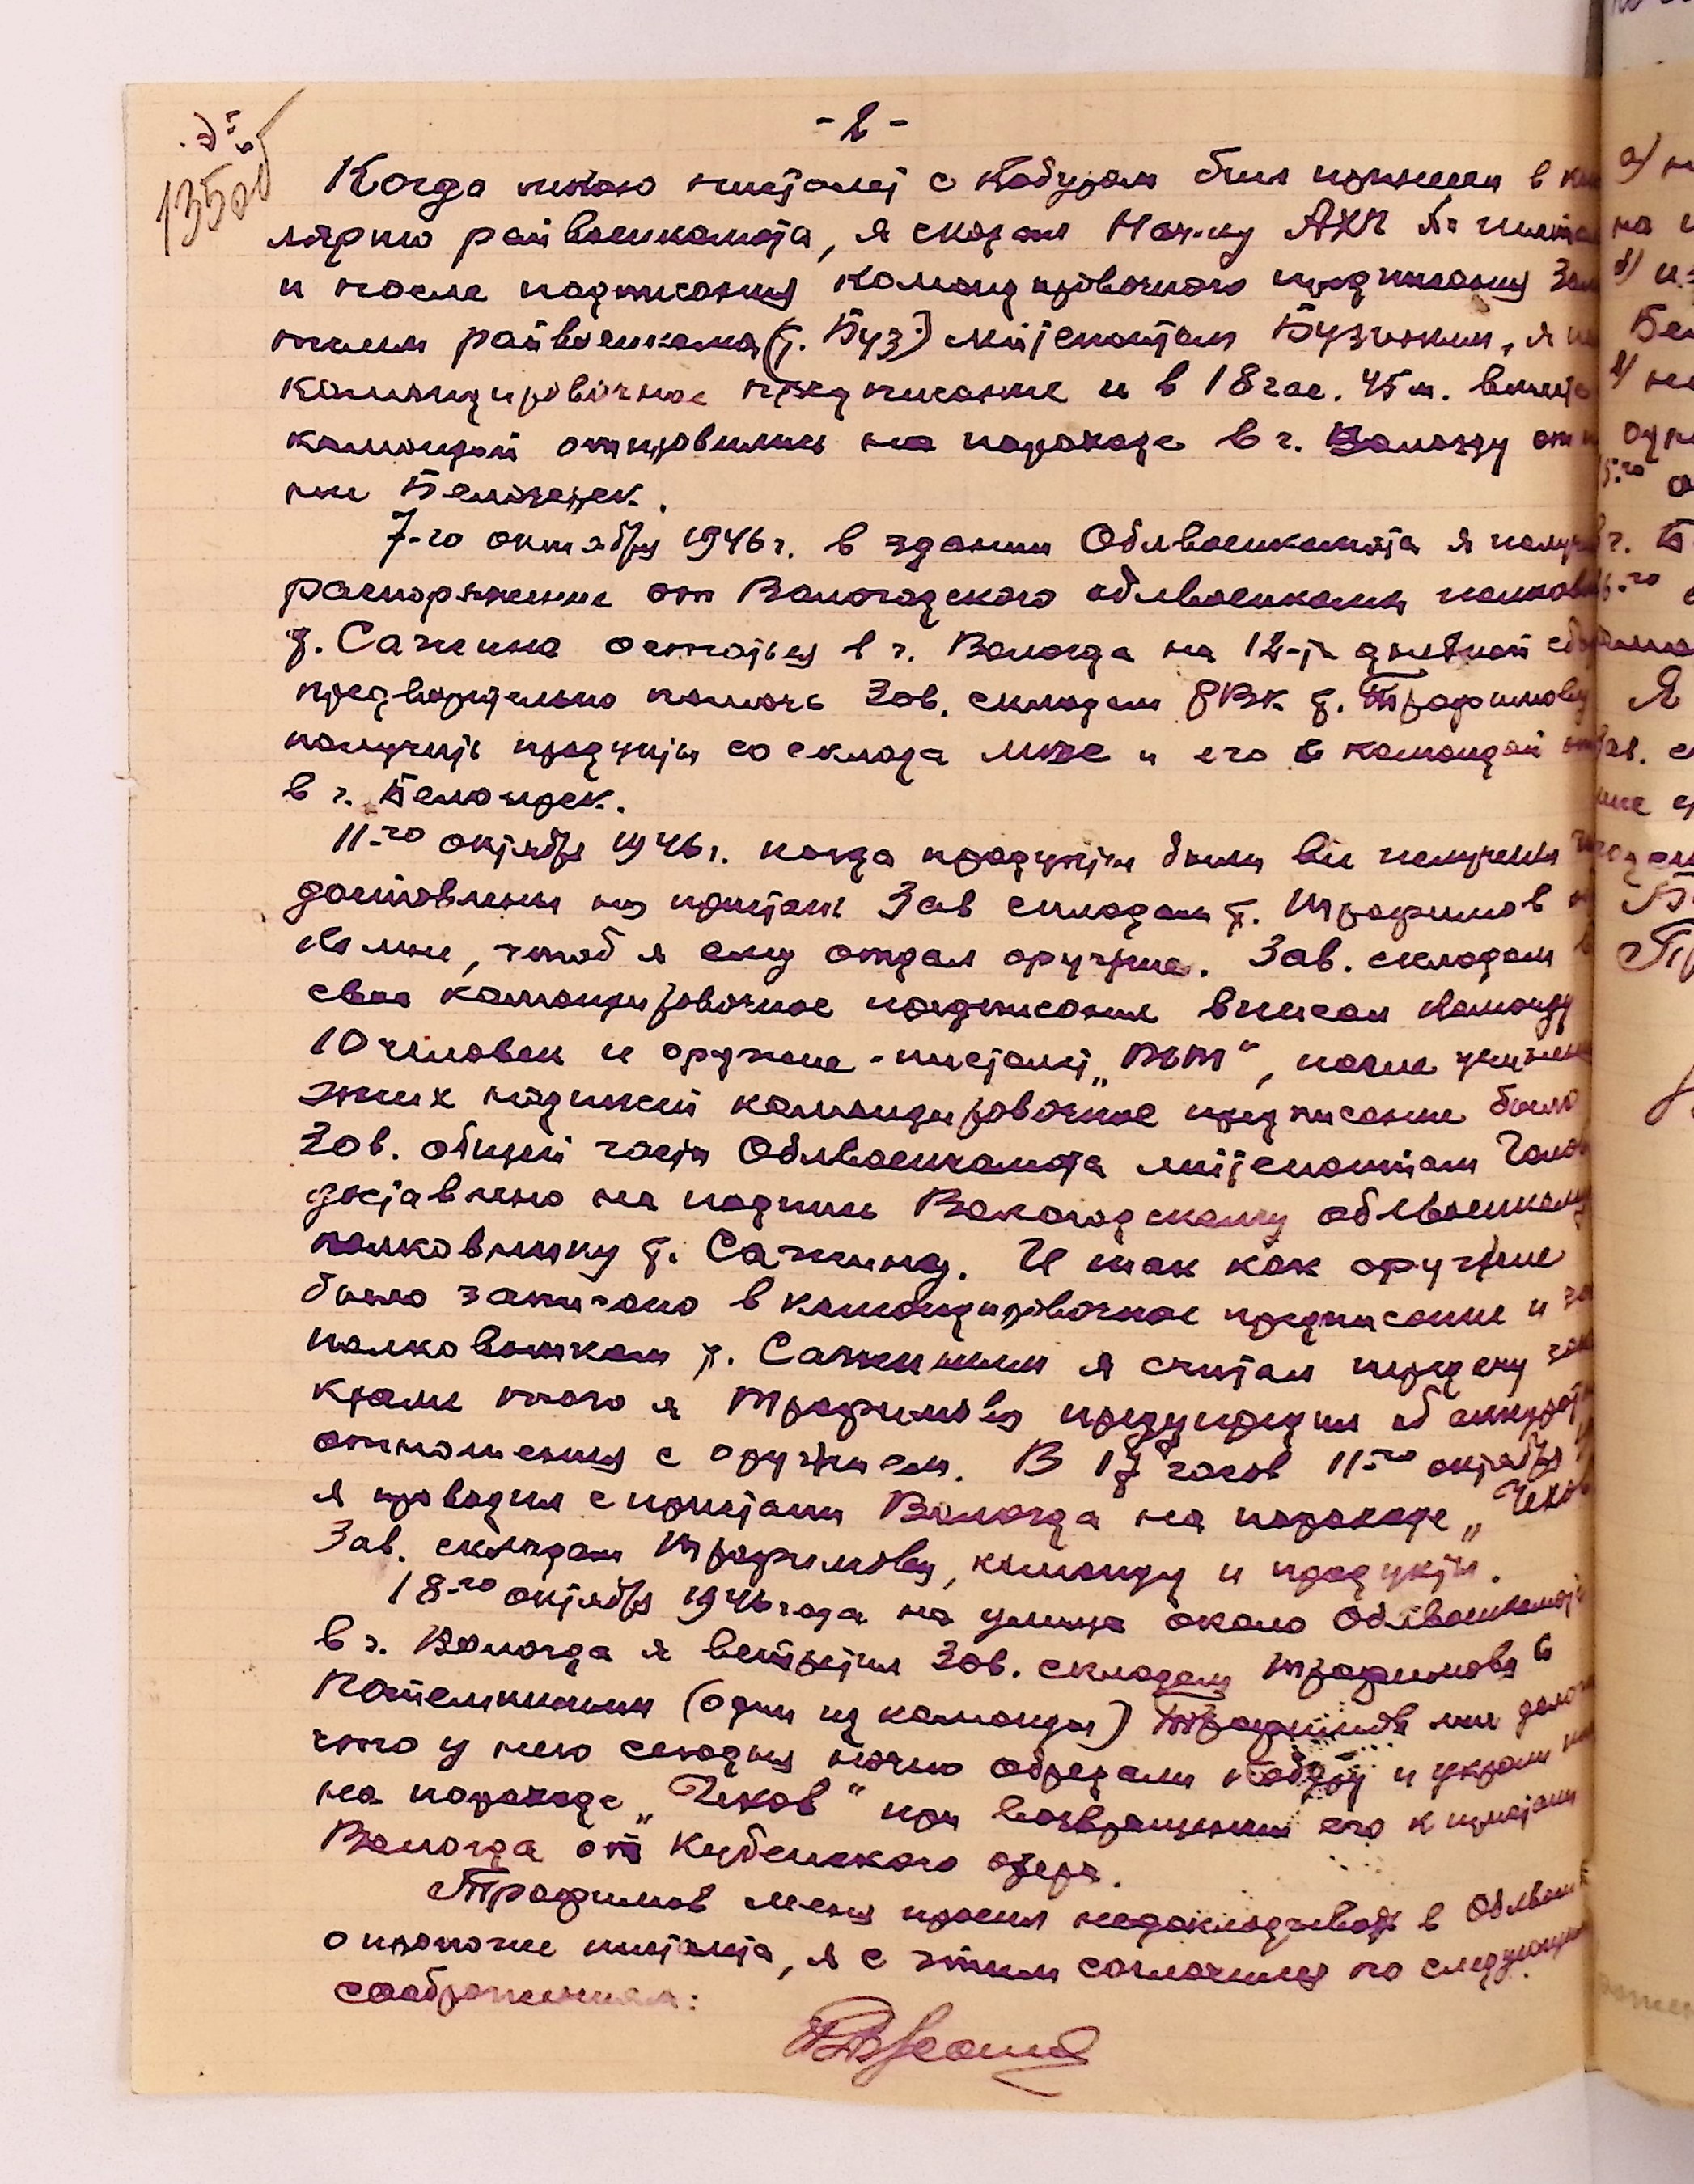 - 2 -
135об
Когда мною пистолет с кобурой был принесен в кан
лярию райвоенкомата, я сказал Нач-ку АХЧ
и после подписания командировочного предписания Зам
райвоенкома (т. Буз.) лейтенантом Бузиным, я
командировочное предписание и в 18 час. 45 м. вместе
командой отправились на пароходе в г. Вологду от
ни Белозерск.
7-го октября 1946 г. в здании Облвоенкомата я получ
распоряжение от Вологодского облвоенкома полков
т. Сажина остаться в г. Вологда на 12-ти дневной сбо
предварительно помочь Зав. складом РВК т. Трофимову
получить продукты со склада и его с командой
в г. Белозерск.
11-го октября 1946 г. когда продукты были все получены
доставлены на пристань Зав складом т. Трофимов
ко мне, чтоб я ему отдал оружие. Зав. складом в
свое командировочное предписание вписал команду
10 человек и оружие - пистолет „ТТ“, после учинения
этих подписей командировочное предписание было
Зав. общей части Облвоенкомата лейтенантом Голов
доставлено на подпись Вологодскому облвоенкому
полковнику т. Сажину. И так как оружие
было записано в командировочное предписание и за
полковником т. Сажиным я считал передачу зак
кроме того я Трофимова предупредил об аккурат
отношения с оружием. В 17 часов 11-го октября
я проводил с пристани Вологда на пароходе „Чехов
Зав. складом Трофимова, команду и продукты.
18-го октября 1946 года на улице около Облвоенкомата
в г. Вологда я встретил Зав. складом Трофимова с
Потемкиным (один из команды) Трофимов мне долож
что у него сегодня ночью обрезали кобуру и украли
на пароходе „Чехов“ при возвращении его к пристани
Вологда от Кубенского озера.
Трофимов меня просил недокладывать в Облвоен
о пропаже пистолета, я с этим согласился по следующим
соображениям: